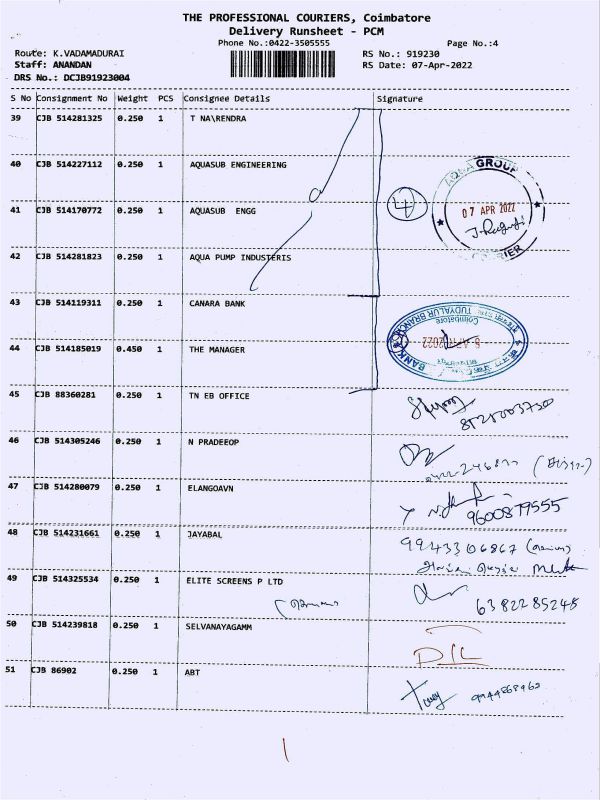 THE PROFESSIONAL COURIERS, Coimbatore
Delivery Runsheet - PCM
Phone No.:0422-3505555
Page No.:4
Route: K.VADAMADURAI
RS No.: 919230
Staff: ANANDAN
RS Date: 07-Apr-2022
DRS No.: DCJB91923004
S No Consignment No Weight PCS Consignee Details Signature
39 CJB 514281325 0.250 1 T NA\RENDRA
40 CJB 514227112 0.250 1 AQUASUB ENGINEERING
AQUA GROUP
41 CJB 514170772 0.250 1 AQUASUB ENGG
4
07 APR 2022
COURIER
42 CJB 514281823 0.250 1 AQUA PUMP INDUSTERIS
43 CJB 514119311 0.250 1 CANARA BANK
TUDIYALUR BRANCH
Coimbatore
44 CJB 514185019 0.450 1 THE MANAGER
APR 2022
BANK
45 CJB 88360281 0.250 1 TN EB OFFICE
46 CJB 514305246 0.250 1 N PRADEEOP
47 CJB 514280079 0.250 1 ELANGOAVN
9600879555
48 CJB 514231661 0.250 1 JAYABAL
9943306867
49 CJB 514325534 0.250 1 ELITE SCREENS P LTD
6382285245
50 CJB 514239818 0.250 1 SELVANAYAGAMM
D/L
51 CJB 86902 0.250 1 ABT
9944868962